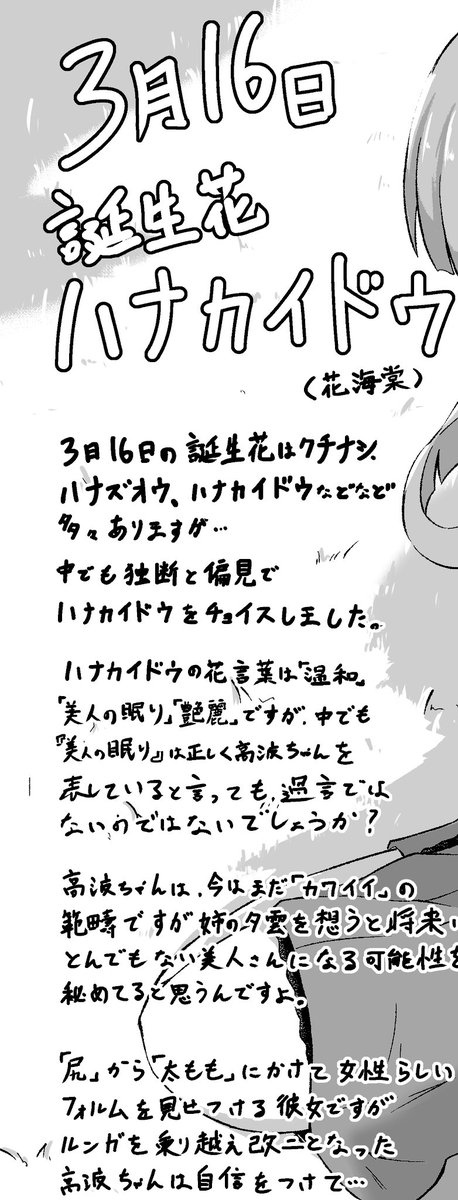 3月16日
誕生花
ハナカイドウ
(花海棠)
3月16日の誕生花はクチナシ、
ハナズオウ、ハナカイドウなどなど
多々ありますが…
中でも独断と偏見で
ハナカイドウをチョイスしました。
ハナカイドウの花言葉は「温和」
「美人の眠り」「艶麗」ですが、中でも
『美人の眠り』は正しく高波ちゃんを
表していると言っても、過言では
ないのではないでしょうか?
高波ちゃんは、今はまだ「カワイイ」の
範疇ですが姉の夕雲を想うと将来い
とんでもない美人さんになる可能性を
秘めてると思うんですよ。
「尻」から「太もも」にかけて女性らしい
フォルムを見せつける彼女ですが
ルンガを乗り越え改二となった
高波ちゃんは自信をつけて…